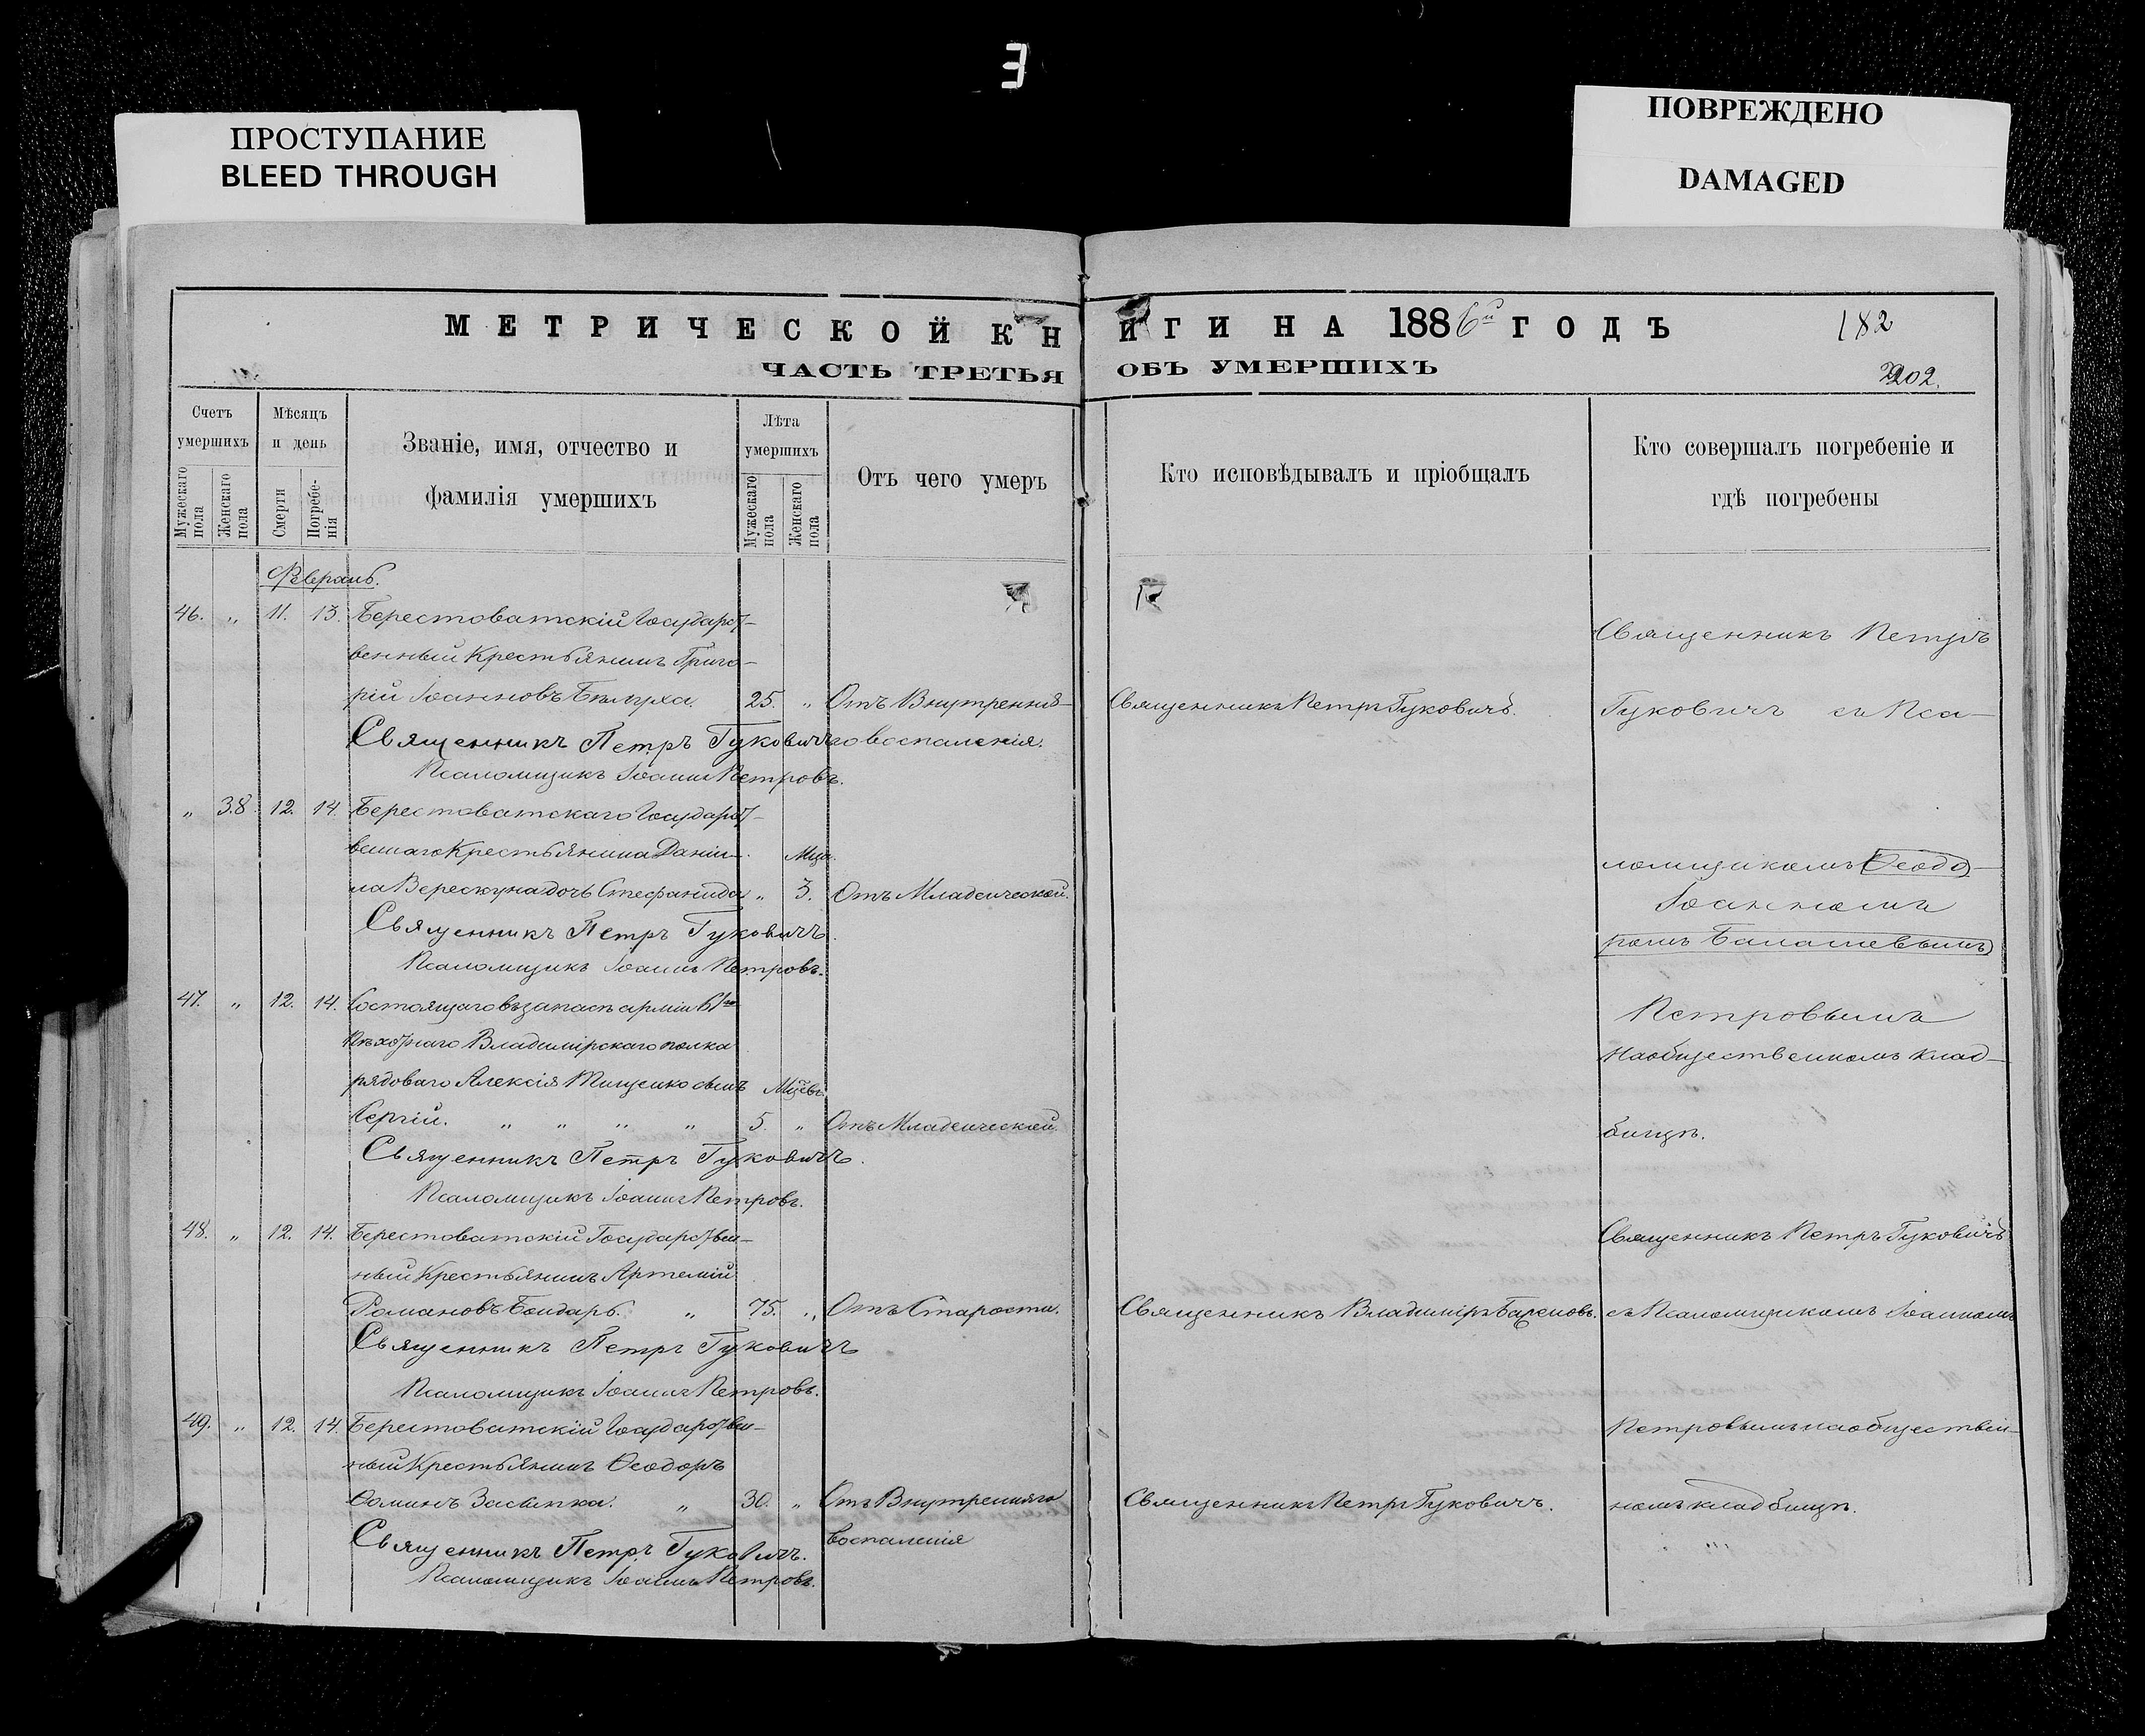 E
ПРОСТУПАНИЕ
BLEED THROUGH
ПОВРЕЖДЕНО
DAMAGED
МЕТРИЧЕСКОЙ КНИГИ НА 1886й ГОДЪ
182
ЧАСТЬ ТРЕТЬЯ ОБЪ УМЕРШИХЪ
202.
Счетъ умершихъ
Мужескаго пола
Женскаго пола
Мѣсяцъ и день
Смерти
Погребе-нія
Званіе, имя, отчество и
фамилія умершихъ
Лѣта умершихъ
Мужескаго пола
Женскаго пола
Отъ чего умеръ
Кто исповѣдывалъ и пріобщалъ
Кто совершалъ погребеніе и
гдѣ погребены
Февраль.
46. „ 11. 13. Берестоватскій Государст-
Священникъ Петръ
венный Крестьянинъ Григо-
рій Іоанновъ 25. „ Отъ Внутрення- Священникъ Петръ Гуковичъ. Гуковичъ съ Пса-
Священникъ Петръ Гуковичъ го воспаленія.
Псаломщикъ Іоаннъ Петровъ.
„ 38 12. 14. Берестоватскаго Государст-
веннаго Крестьянина Даніи- Мца.
ломщикомъ Ѳеодо-
ла Верескуна дочь Стефанида „ 3. Отъ Младенческой.
Іоанномъ
Священникъ Петръ Гуковичъ.
ромъ Балашевымъ
Псаломщикъ Іоаннъ Петровъ.
47. „ 12. 14. Состоящаго въ запасѣ арміи 61го
Петровымъ
Пѣхотнаго Владимірскаго полка
На общественномъ клад-
рядоваго Алексія Тищенко сынъ Мцевъ.
Сергій. „ „ „ „ 5. „ Отъ Младенческой.
бищѣ.
Священникъ Петръ Гуковичъ.
Псаломщикъ Іоаннъ Петровъ.
48. „ 12. 14. Берестоватскій Государствен-
Священникъ Петръ Гуковичъ
ный Крестьянинъ Артемій
Романовъ Бондарь. „ 75. „ Отъ Старости. Священникъ Владиміръ съ Псаломщикомъ Іоанномъ
Священникъ Петръ Гуковичъ
Псаломщикъ Іоаннъ Петровъ.
49. „ 12. 14. Берестоватскій Государствен-
Петровымъ на обществен-
ный Крестьянинъ Ѳеодоръ
Ѳоминъ „ 30. „ Отъ Внутренняго Священникъ Петръ Гуковичъ. номъ кладбищѣ.
Священникъ Петръ Гуковичъ. воспаленія
Псаломщикъ Іоаннъ Петровъ.